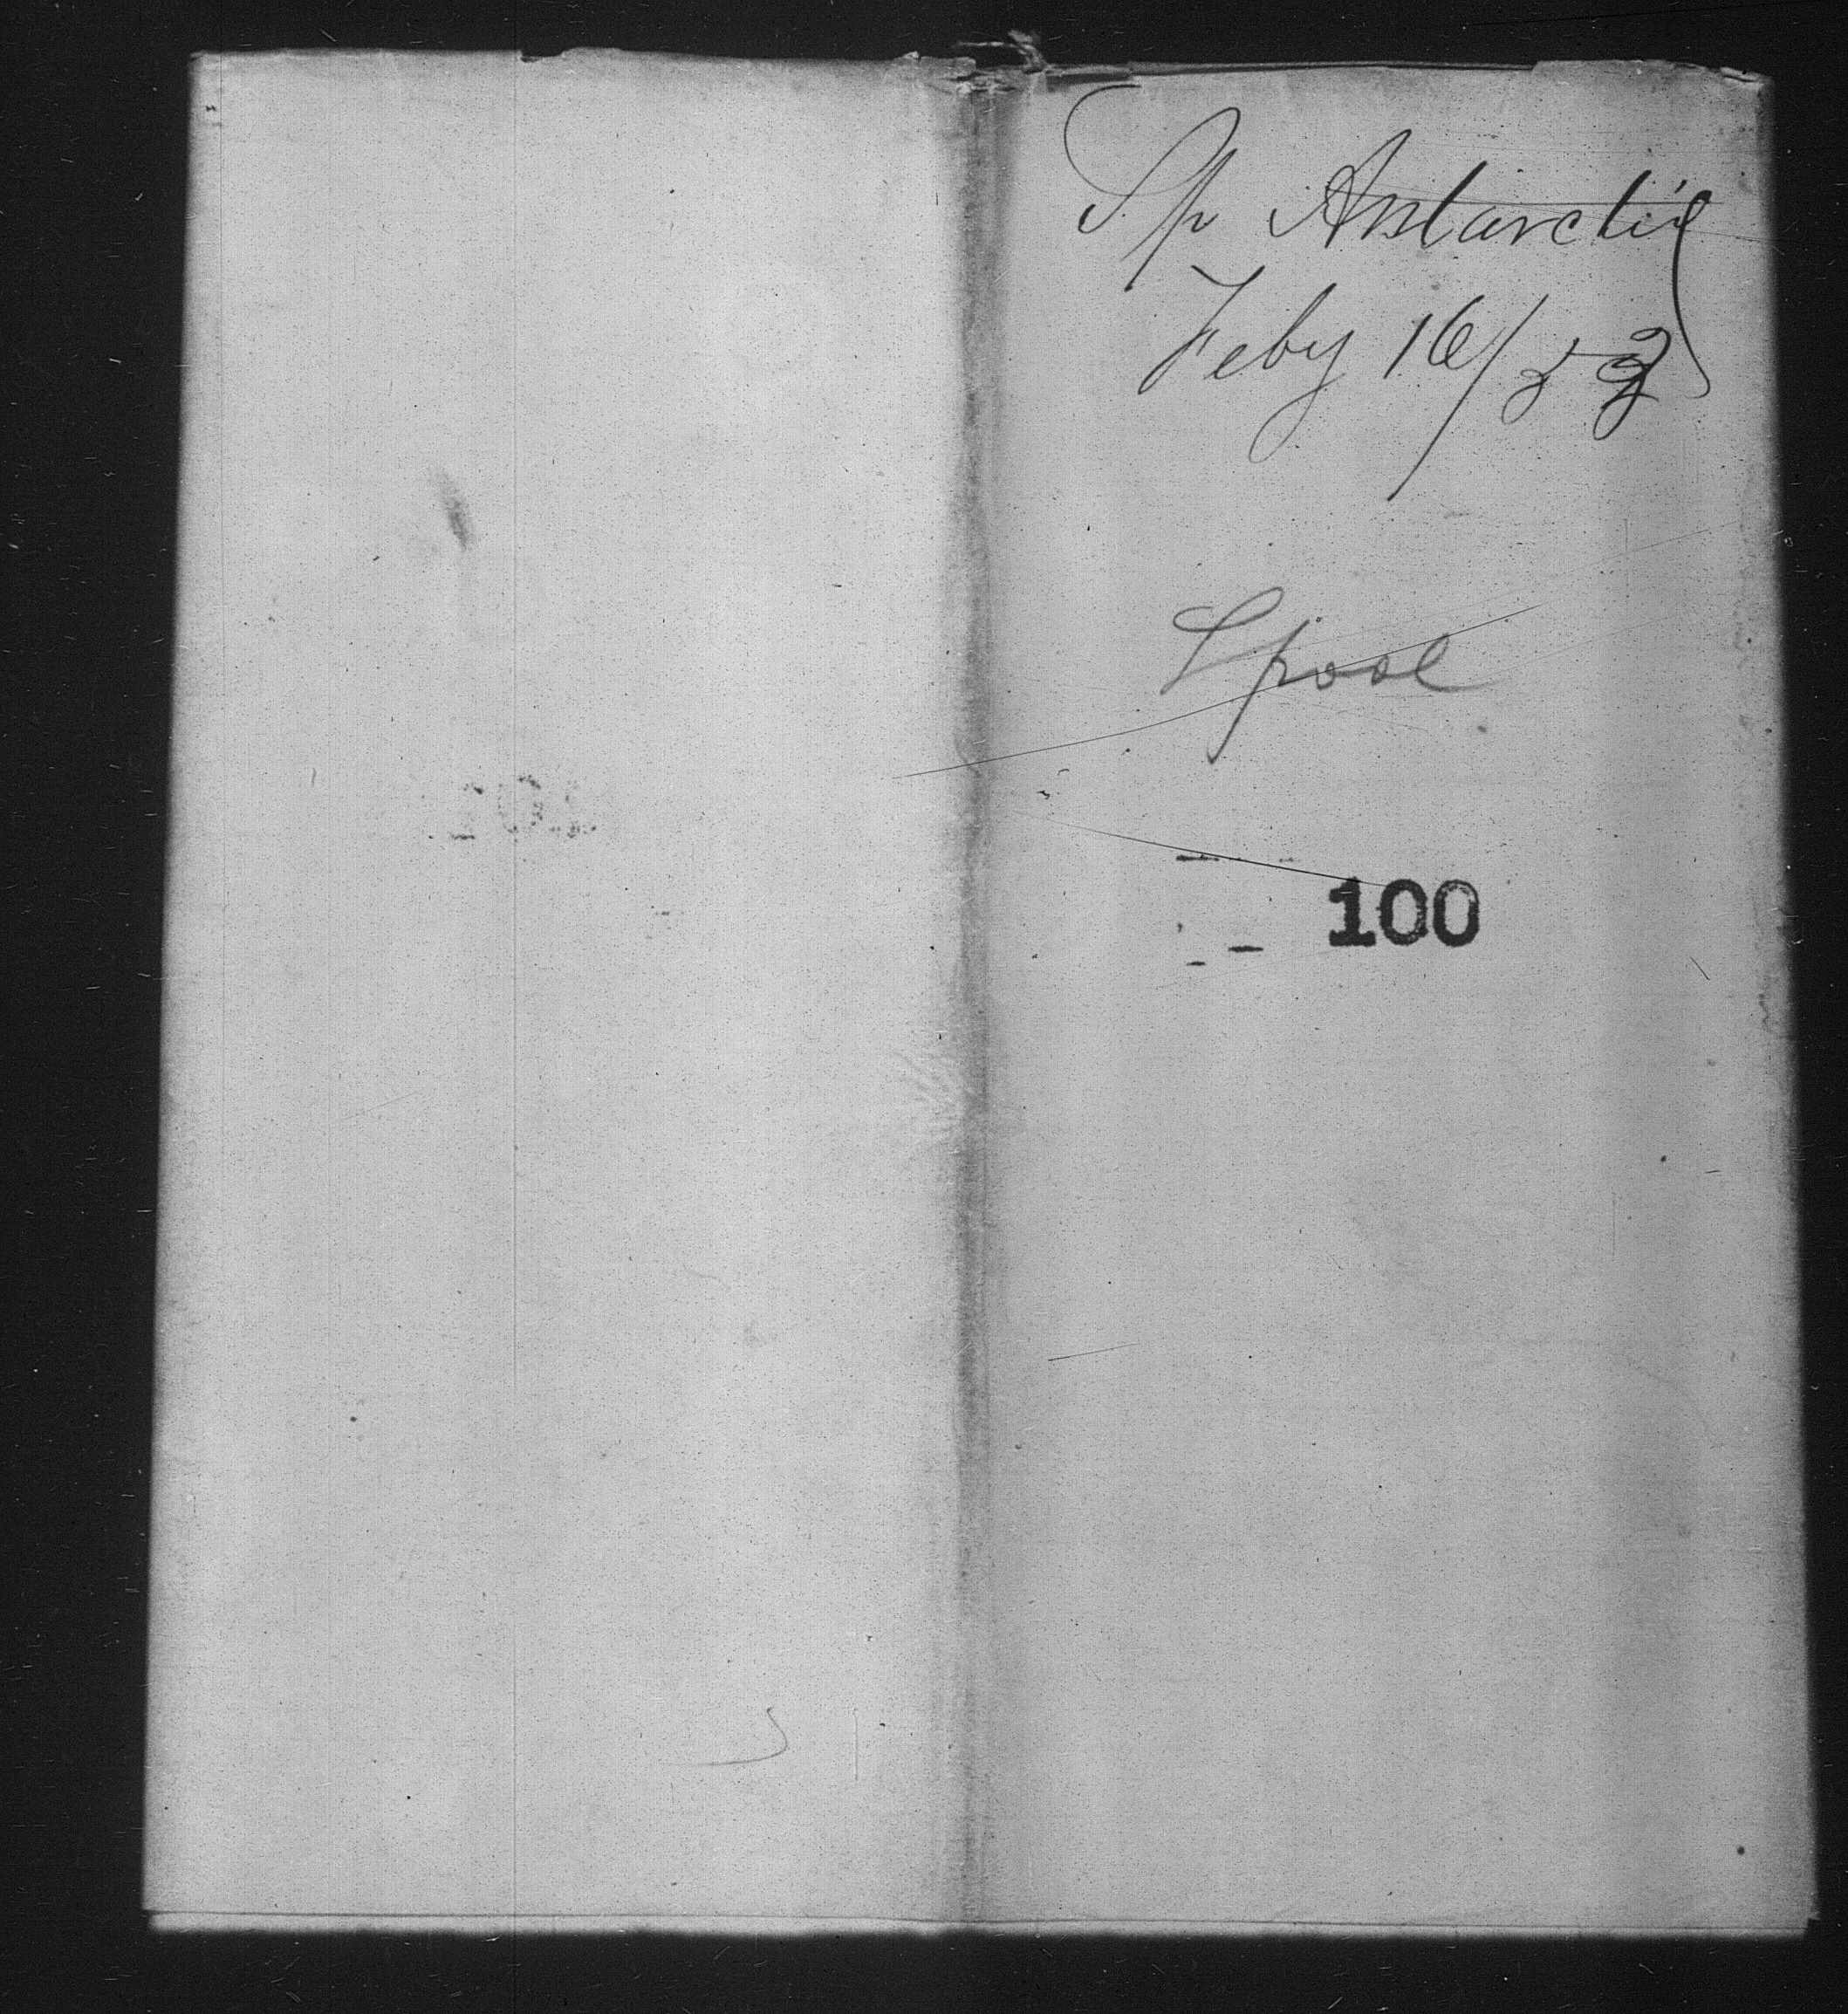 Sp Antarctic
Feby 16/53
Lpool
100